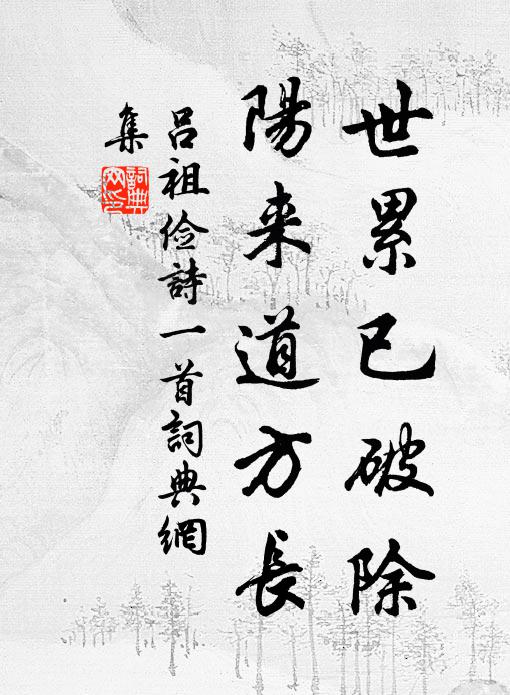 世累已破除
陽来道方長
呂祖俭詩一首詞典網
集
詞典
网印